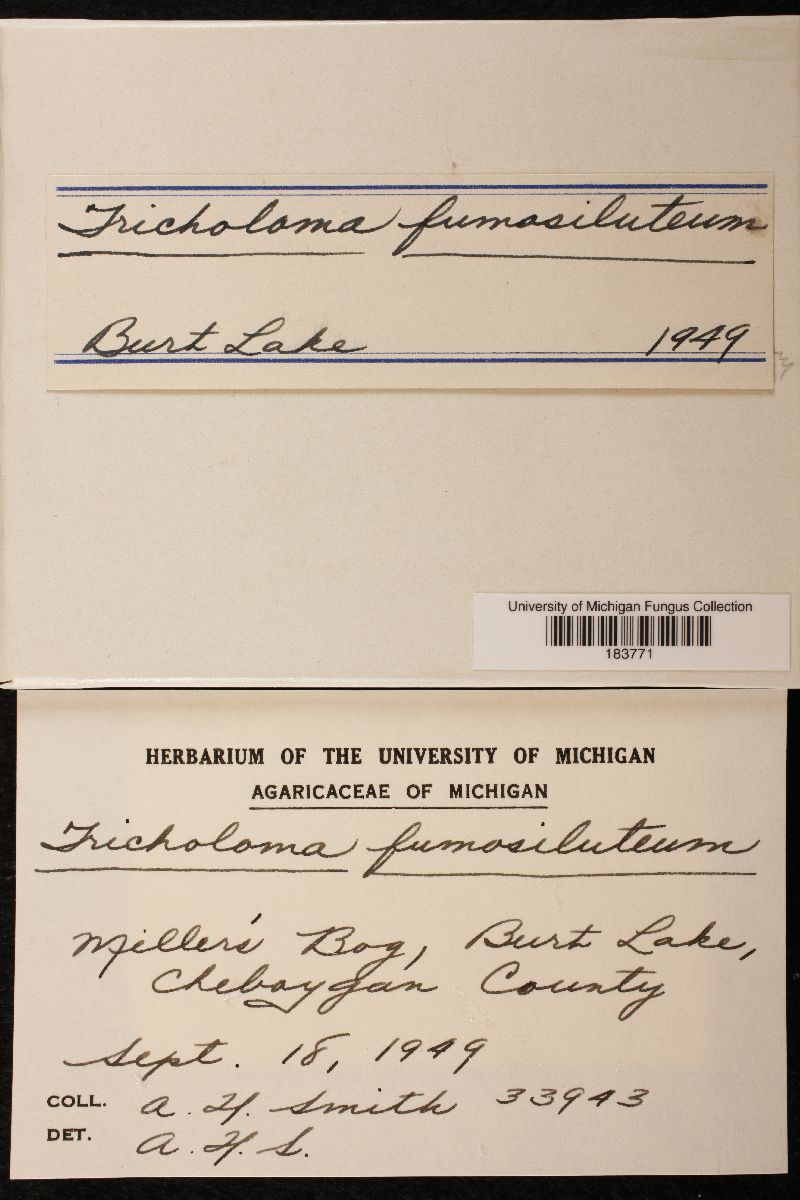 Tricholoma fumosiluteum
Burt Lake 1949
University of Michigan Fungus Collection
183771
HERBARIUM OF THE UNIVERSITY OF MICHIGAN
AGARICACEAE OF MICHIGAN
Tricholoma fumosiluteum
Miller's Bog, Burt Lake,
Cheboygan County
Sept. 18, 1949
COLL. A. H. Smith 33943
DET. A. H. S.